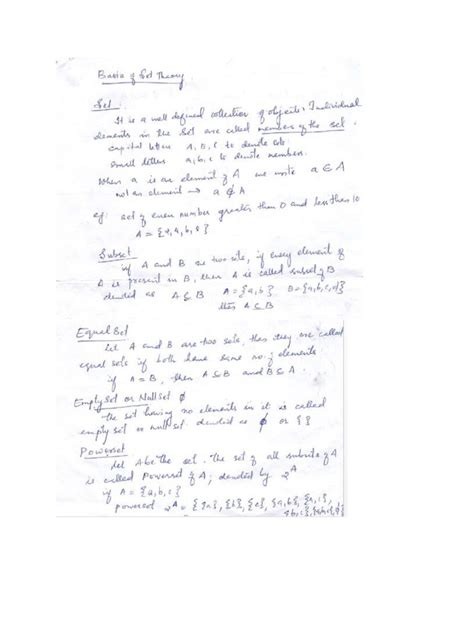 Basic of Set Theory
Set.
It is a well defined collection of objects. Individual
elements in the set are called members of the set.
capital letters A, B, C to denote sets.
small letters a, b, c to denote members.
When a is an element of A we write a ∈ A
not an element → a ∉ A
eg: set of even number greater than 0 and less than 10
Subset
if A and B are two sets, if every element of
A is present in B, then A is called subset of B
denoted as A ⊆ B A = {a, b} B = {a, b, c, d}
then A ⊆ B
Equal Set
Let A and B are two sets, then they are called
equal sets if both have same no. of elements
if A = B, then A ⊆ B and B ⊆ A.
Empty Set or Null Set ϕ
The set having no elements in it is called
empty set or null set. denoted as ϕ or { }
Powerset
Let A be the set. The set of all subsets of A
is called Powerset of A; denoted by 2^A
if A = {a, b, c}
powerset 2^A = {{a}, {b}, {c}, {a, b}, {a, c},
{b, c}, {a, b, c}, ϕ}